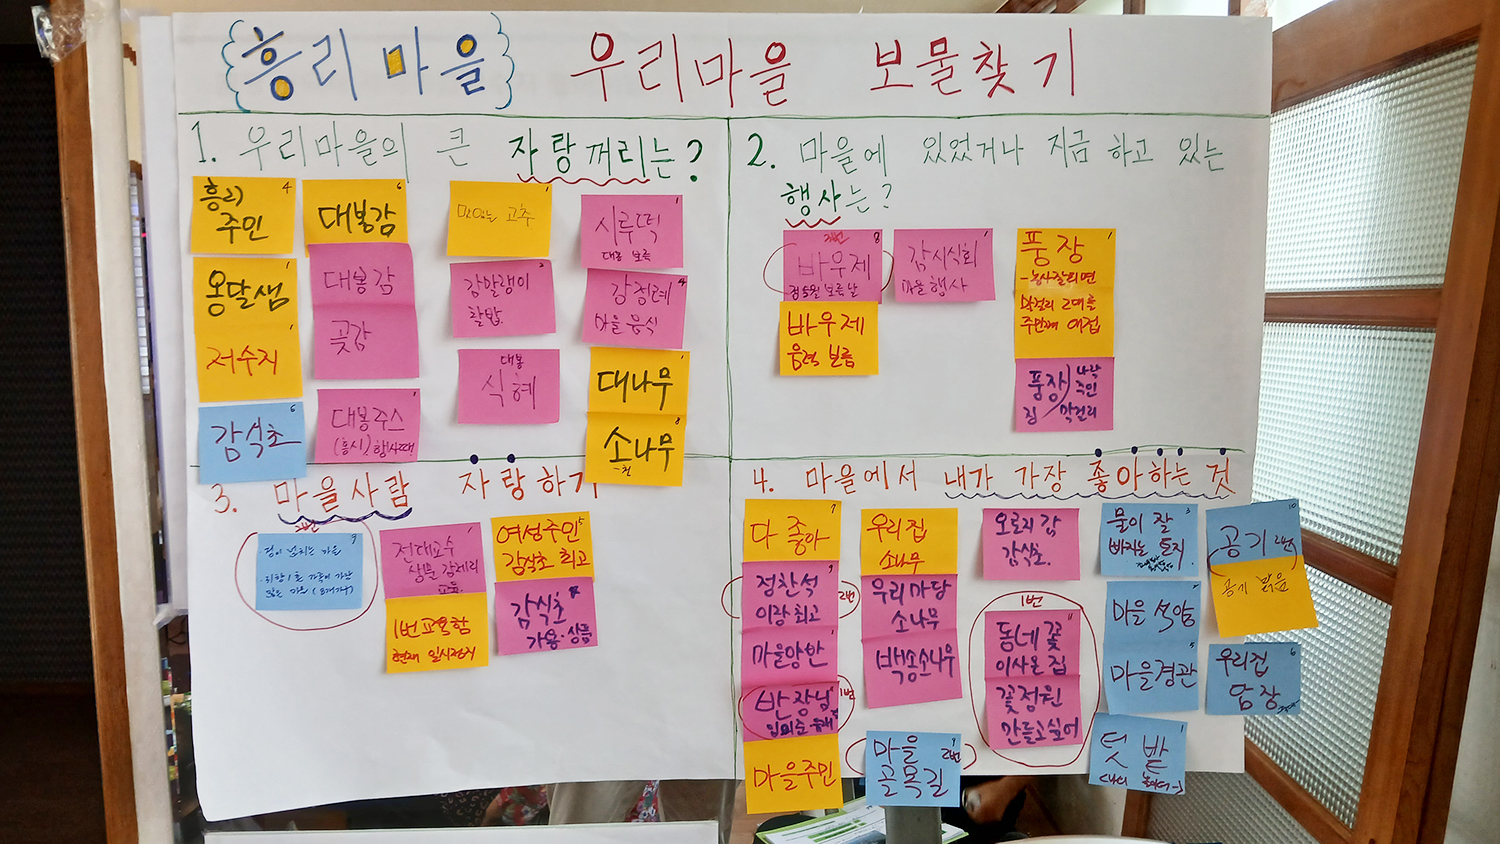 흥리마을 우리마을 보물찾기
1. 우리마을의 큰 자랑꺼리는?
흥리 4
주민
옹달샘 1
저수지 1
감식초 6
대봉감 6
대봉감
곶감
대봉주스
(흥시) 행사때
맛있는 고추 1
감말랭이 2
찰밥.
대봉
식혜
시루떡 1
대봉 보름
강정례 4
마을 음식
대나무 1
소나무 8
2. 마을에 있었거나 지금 하고 있는
행사는?
2번 8
바우제
정월 보름날
바우제
음력 보름
감시식회 1
마을 행사
풍장 1
-농사잘되면
막걸리 2대를
주민께 대접
풍장
막걸리
3. 마을사람 자랑하기
2번 9
정이 넘치는 마을
많은 마을
전대교수 1
생문 갈레리
교물.
1번교육함
현재 일시정지
여성주민 5
감식초 최고
감식초
가용·상품
4. 마을에서 내가 가장 좋아하는 것
다 좋아 7
정찬석 9
이장 최고 2번
마을방반 1
반장님 1번
마을주민
우리집
소나무
우리마당
소나무
백송소나무
마을 9
골목길 2번
오로지 감
감식초.
1번
동네 꽃 11
이사온 집
꽃정원
만들고싶어
물이 잘 3
빠지는 토지
마을 석양
마을경관 5
텃밭 1
공기 2번 10
공기 맑음
우리집 6
담장